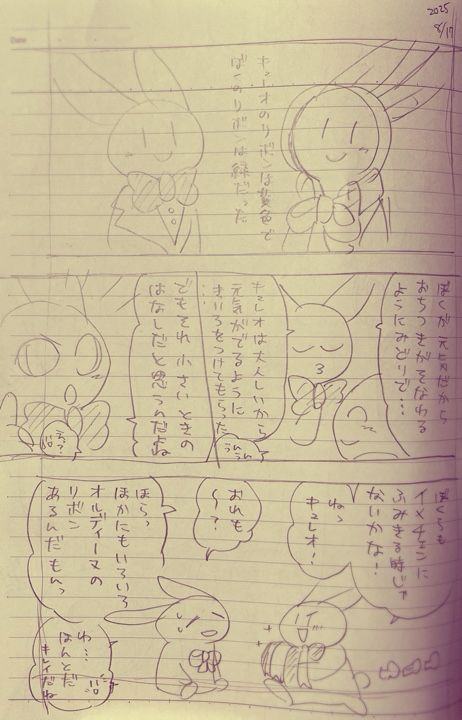 2025
8/17
キュレオのリボンは黄色で
ぼくのリボンは緑だった
ぼくが元気だから
おちつきがそなわる
ようにみどりで…
キュレオは大人しいから
元気がでるように
きいろをつけてもらった
うんうん
でもそれ小さいときの
はなしだと思うんだよね
えっ?
ぼくらも
イメチェンに
ふみきる時じゃ
ないかな!
ねっ
キュレオ!
おれも
〜?
ほらっ
ほかにもいろいろ
オルディーヌの
リボン
あるんだもんっ
わ…
ほんとだ
キレイだね